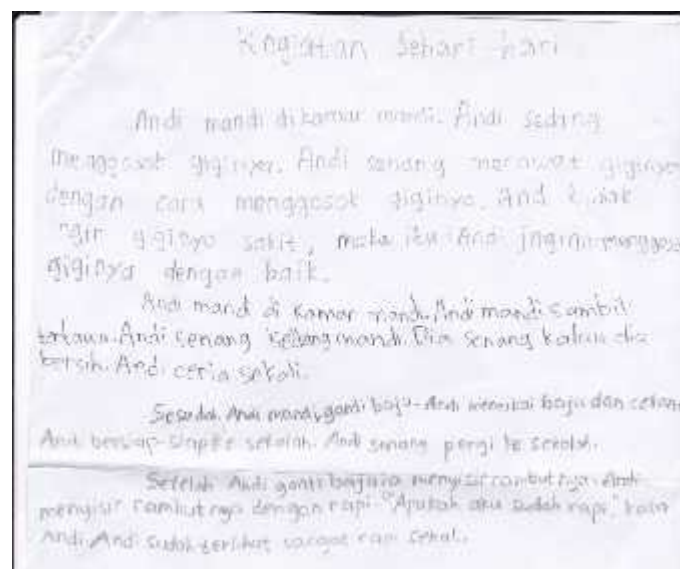 Kegiatan Sehari hari
Andi mandi di kamar mandi. Andi sedang
menggosok giginya. Andi senang merawat giginya
dengan cara menggosok giginya. Andi tidak
ingin giginya sakit, maka itu Andi menggosok
giginya dengan baik.
Andi mandi di kamar mandi. Andi mandi sambil
Andi senang mandi. Dia senang kalau dia
bersih. Andi ceria sekali.
Sesudah Andi mandi, ganti baju. Andi memakai baju dan celana
Andi bersiap-siap ke sekolah. Andi senang pergi ke sekolah.
Setelah Andi ganti baju ia menyisir rambutnya. Andi
menyisir rambutnya dengan rapi. "Apakah aku sudah rapi," kata
Andi. Andi sudah terlihat sangat rapi sekali.